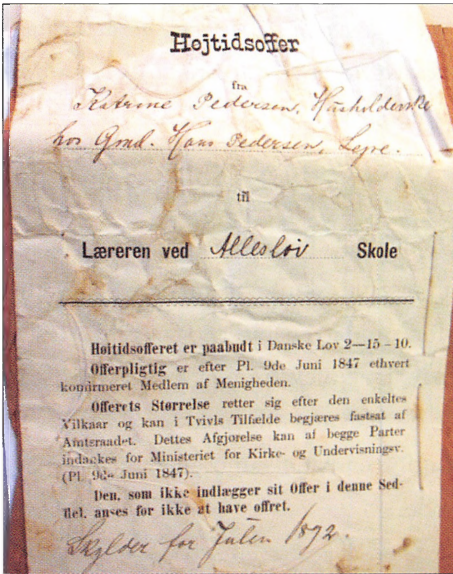 Højtidsoffer
fra
Katrine Pedersen, Husholderske
hos Gmd. Hans Pedersen, Lejre.
til
Læreren ved Allesløv Skole
Høitidsofferet er paabudt i Danske Lov 2—15—10.
Offerpligtig er efter Pl. 9de Juni 1847 ethvert
konfirmeret Medlem af Menigheden.
Offerets Størrelse retter sig efter den enkeltes
Vilkaar og kan i Tvivls Tilfælde begjæres fastsat af
Amtsraadet. Dettes Afgjørelse kan af begge Parter
indankes for Ministeriet for Kirke- og Undervisningsv.
(Pl. 9de Juni 1847).
Den, som ikke indlægger sit Offer i denne Sed-
del, anses for ikke at have offret.
Skylder for Julen 1892.